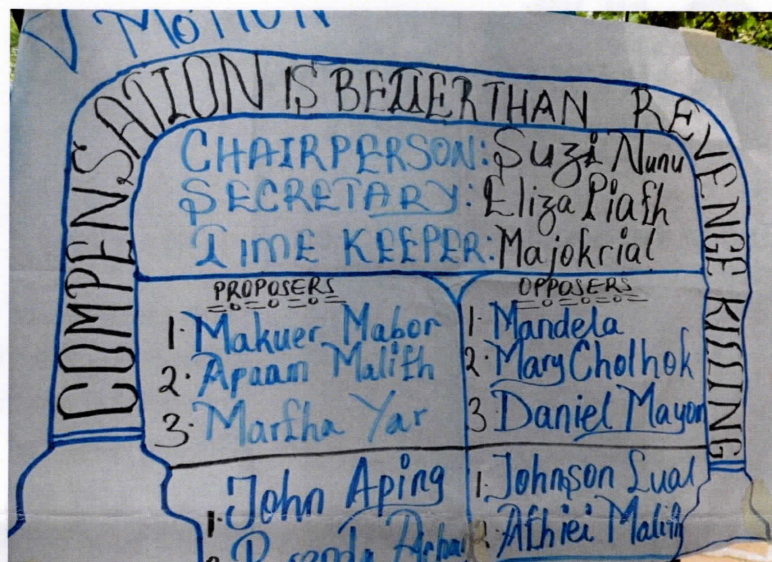 MOTION
COMPENSATION IS BETTER THAN REVENGE KILLING
CHAIRPERSON: Suzi Nunu
SECRETARY: Eliza Piath
TIME KEEPER: Majokrial
PROPOSERS
1. Makuer Mabor
2. Apaam Malith
3. Martha Yar
OPPOSERS
1. Mandela
2. Mary Cholhok
3. Daniel Mayom
1. John Aping
1. Johnson Lual
2. Athiei Malith